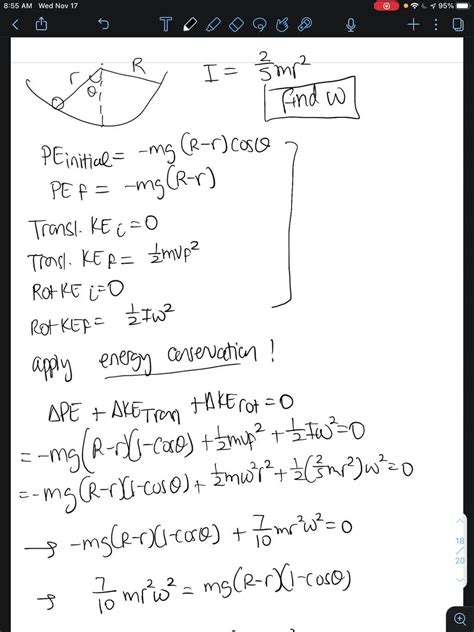 8:55 AM Wed Nov 17
95%
r R
θ
I = 2/5 mr²
find ω
PEinitial = -mg(R-r)cosθ
PE f = -mg(R-r)
Transl. KE i = 0
Transl. KE f = 1/2 mvf²
Rot KE i = 0
Rot KEf = 1/2 Iω²
apply energy conservation !
ΔPE + ΔKE Tran + ΔKE rot = 0
= -mg(R-r)(1-cosθ) + 1/2 mvf² + 1/2 Iω² = 0
= -mg(R-r)(1-cosθ) + 1/2 mω²r² + 1/2 (2/5 mr²)ω² = 0
→ -mg(R-r)(1-cosθ) + 7/10 mr²ω² = 0
→ 7/10 mr²ω² = mg(R-r)(1-cosθ)
18
20